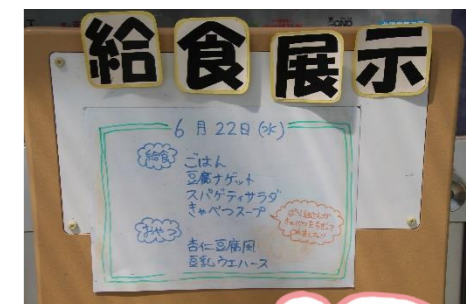 給食展示
6月22日(水)
給食
ごはん
豆腐ナゲット
スパゲティサラダ
きゃべつスープ
おやつ
杏仁豆腐風
豆乳ウエハース